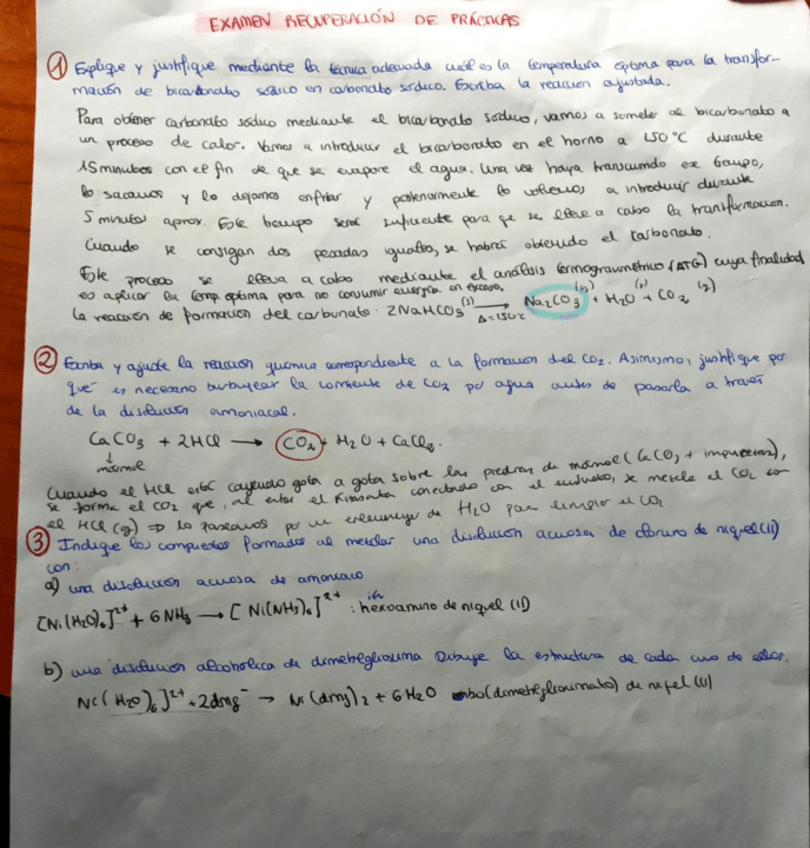 EXAMEN RECUPERACIÓN DE PRÁCTICAS
① Explique y justifique mediante la técnica adecuada cuál es la temperatura óptima para la transfor-
mación de bicarbonato sódico en carbonato sódico. Escriba la reacción ajustada.
Para obtener carbonato sódico mediante el bicarbonato sódico, vamos a someter al bicarbonato a
un proceso de calor. Vamos a introducir el bicarbonato en el horno a 150°C durante
15 minutos con el fin de que se evapore el agua. Una vez haya transcurrido ese tiempo,
lo sacamos y lo dejamos enfriar y posteriormente lo volvemos a introducir durante
5 minutos aprox. Este tiempo será suficiente para qe se lleve a cabo la transformación.
Cuando se consigan dos pesadas iguales, se habrá obtenido el carbonato.
Este proceso se lleva a cabo mediante el análisis termogravimétrico (ATG) cuya finalidad
es aplicar la temp. óptima para no consumir energía en exceso.
La reacción de formación del carbonato: 2NaHCO3 (s) → Δ=150°C Na2CO3 (s) + H2O (g) + CO2 (g)
② Escriba y ajuste la reacción química correspondiente a la formación del CO2. Asimismo, justifique por
qué es necesario burbujear la corriente de CO2 por agua antes de pasarla a través
de la disolución amoniacal.
CaCO3 + 2HCl → CO2 + H2O + CaCl2.
↓
mármol
Cuando el HCl está cayendo gota a gota sobre las piedras de mármol (CaCO3 + impurezas),
se forma el CO2 que, al estar el Kitasato conectado con el embudo, se mezcla el CO2 con
el HCl (g) ⇒ lo pasamos por un de H2O para limpiar el CO2
③ Indique los compuestos formados al mezclar una disolución acuosa de cloruro de níquel (II)
con:
a) una disolución acuosa de amoniaco
[Ni(H2O)6]2+ + 6NH3 → [Ni(NH3)6]2+ : ión hexoamino de níquel (II)
b) una disolución alcohólica de dimetilglioxima Dibuje la estructura de cada uno de ellos.
Ni(H2O)6]2+ + 2dmg- → Ni(dmg)2 + 6H2O (dimetilglioximato) de níquel (II)